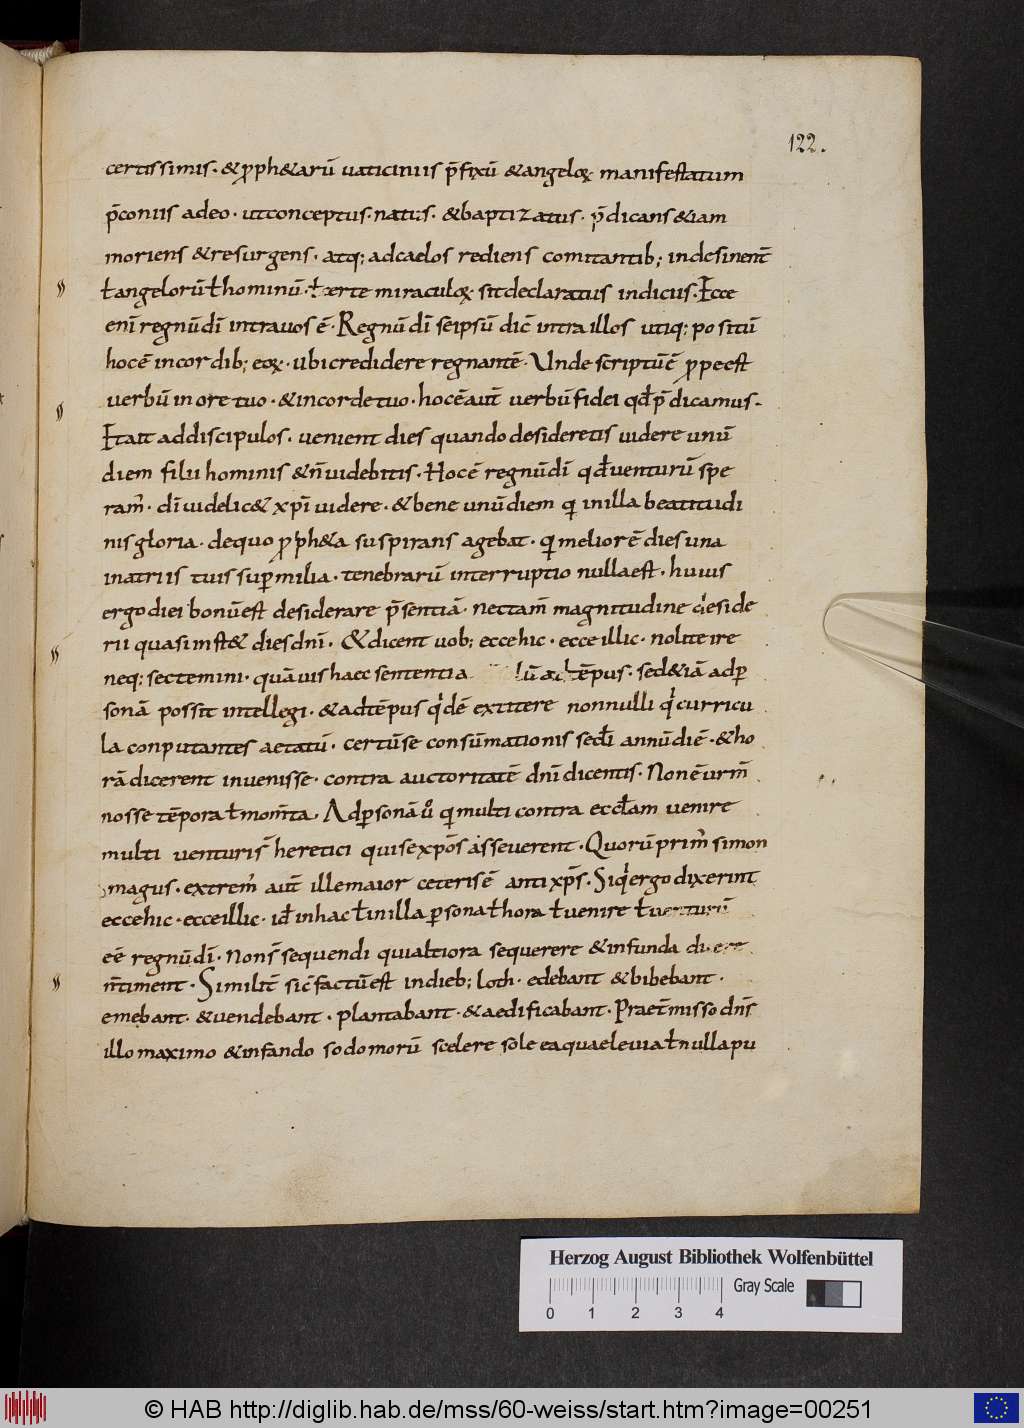 122.
certissimis· &ꝓph&arū uaticiniis p̄fixū &angeloꝝ manifestatum
p̄coniis adeo· utconceptus· natus· &baptizatus· p̄dicans &iam
moriens &resurgens· atq; adcaelos rediens comitantib; indesinent̄
ł angelorū ł hominū· ł certe miraculoꝝ sit declaratus indiciis· Ecce
eni̅ regnū dī intra uos ē· Regnū dī seipsū dic̄ intra illos utiq; positū
hoc ē incordib; eoꝝ· ubi credidere regnantē· Unde scriptū ē ꝓpe est
uerbū inore tuo· &incorde tuo· hoc ē aut̄ uerbū fidei qđ p̄dicamus·
Et ait addiscipulos· uenient dies quando desideretis uidere unū
diem filii hominis &n̄ uidebitis· Hoc ē regnū dī qđ uenturū spe
ram̄· dī uidelic& xp̄i uidere· &bene unū diem qi inilla beatitudi
nis gloria· dequo ꝓph&a suspirans agebat· qi melior ē dies una
inatriis tuis suꝑ milia· tenebrarū interruptio nulla est· huius
ergo diei bonū est desiderare p̄sentiā· nec tam̄ magnitudine deside
rii quasi inst& dies dn̄i· &dicent uob; ecce hic· ecce illic· nolite ire
neq; sectemini· quāuis haec sententia lū ad tēpus· sed &iā adꝑ
sonā possit intellegi· &ad tēpus qidē extitere nonnulli qi curricu
la conputantes aetatū· certū se consūmationis sc̄li annū diē· &ho
rā dicerent inuenisse· contra auctoritatē dn̄i dicentis· Non ē urm̄
nosse tēpora ł mom̄ta· Adꝑsonā uͦ qi multi contra eccłam uenire
multi uenturis̄ heretici qui se xpōs asseuerent· Quorū prim̄ simon
magus· extrem̄ aut̄ ille maior ceteris ē antixp̄s· Si qi ergo dixerint
ecce hic· ecce illic· id inhac ł inilla ꝑsona ł hora ł uenire ł uenturū
eē regnū dī· non s̄ sequendi qui altiora sequerere &infunda
n̄ timent· Similit̄ sic̄ factū est indieb; loth· edebant &bibebant·
emebant· &uendebant· plantabant· &aedificabant· Praet̄misso dn̄s
illo maximo &infando sodomorū scelere sole ea quae leuia ł nulla pu
Herzog August Bibliothek Wolfenbüttel
Gray Scale
0 1 2 3 4
© HAB http://diglib.hab.de/mss/60-weiss/start.htm?image=00251